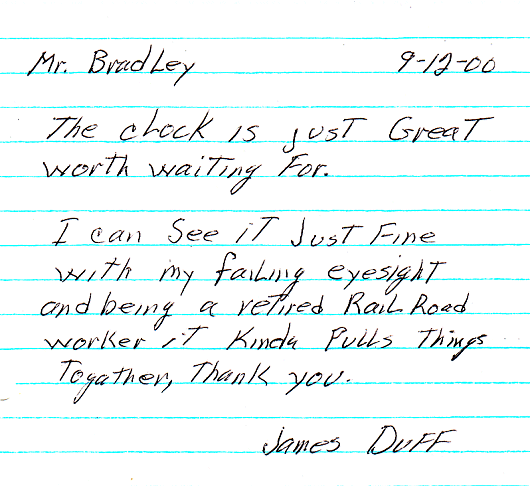 Mr. Bradley 9-12-00
The clock is just Great
worth waiting For.
I can See iT Just Fine
with my failing eyesight
and being a retired Rail Road
worker iT Kinda Pulls Things
Togather, Thank you.
James Duff